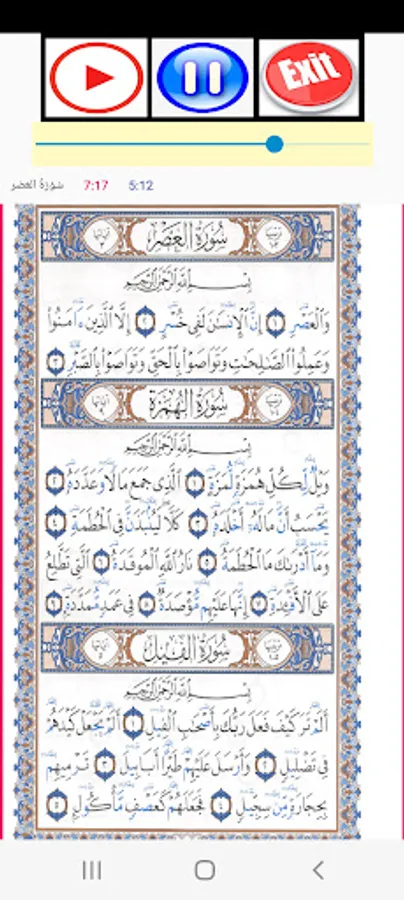 Exit
سورة العصر 7:17 5:12
سُورَةُ العَصْرِ
بِسْمِ اللَّهِ الرَّحْمَٰنِ الرَّحِيمِ
وَالْعَصْرِ ١ إِنَّ الْإِنسَٰنَ لَفِى خُسْرٍ ٢ إِلَّا الَّذِينَ ءَامَنُوا
وَعَمِلُوا الصَّٰلِحَٰتِ وَتَوَاصَوْا بِالْحَقِّ وَتَوَاصَوْا بِالصَّبْرِ ٣
سُورَةُ الهُمَزَةِ
بِسْمِ اللَّهِ الرَّحْمَٰنِ الرَّحِيمِ
وَيْلٌ لِّكُلِّ هُمَزَةٍ لُّمَزَةٍ ١ الَّذِى جَمَعَ مَالًا وَعَدَّدَهُۥ ٢
يَحْسَبُ أَنَّ مَالَهُۥٓ أَخْلَدَهُۥ ٣ كَلَّا لَيُنۢبَذَنَّ فِى الْحُطَمَةِ ٤
وَمَآ أَدْرَىٰكَ مَا الْحُطَمَةُ ٥ نَارُ اللَّهِ الْمُوقَدَةُ ٦ الَّتِى تَطَّلِعُ
عَلَى الْأَفْـِٔدَةِ ٧ إِنَّهَا عَلَيْهِم مُّؤْصَدَةٌ ٨ فِى عَمَدٍ مُّمَدَّدَةٍۭ ٩
سُورَةُ الفِيلِ
بِسْمِ اللَّهِ الرَّحْمَٰنِ الرَّحِيمِ
أَلَمْ تَرَ كَيْفَ فَعَلَ رَبُّكَ بِأَصْحَٰبِ الْفِيلِ ١ أَلَمْ يَجْعَلْ كَيْدَهُمْ
فِى تَضْلِيلٍ ٢ وَأَرْسَلَ عَلَيْهِمْ طَيْرًا أَبَابِيلَ ٣ تَرْمِيهِم
بِحِجَارَةٍ مِّن سِجِّيلٍ ٤ فَجَعَلَهُمْ كَعَصْفٍ مَّأْكُولٍۭ ٥